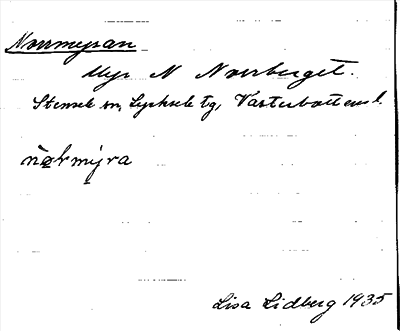 Norrmyran
Myr N Norrberget.
Stensele sn, Lycksele tg, Västerbottens l.
nòrmýra
Lisa Lidberg 1935